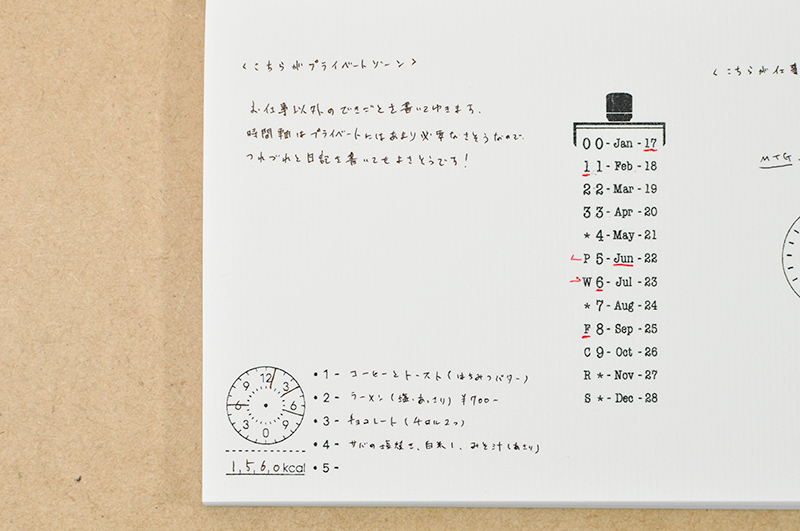 〈こちらがプライベートゾーン〉
お仕事以外のできごとを書いてゆきます。
時間軸はプライベートにはあまり必要なさそうなので、
つれづれと日記を書いてもよさそうです！
〈こちらが仕事
00-Jan-17
11-Feb-18
22-Mar-19
33-Apr-20
*4-May-21
P5-Jun-22
W6-Jul-23
*7-Aug-24
F8-Sep-25
C9-Oct-26
R*-Nov-27
S*-Dec-28
MTG
12
3
6
9
0
3
6
9
1,5,6,0kcal
•1- コーヒーとトースト(はちみつバター)
•2- ラーメン(塩・あっさり) ¥700-
•3- チョコレート(チロル2つ)
•4- サバの塩焼き、白米1、みそ汁(あさり)
•5-